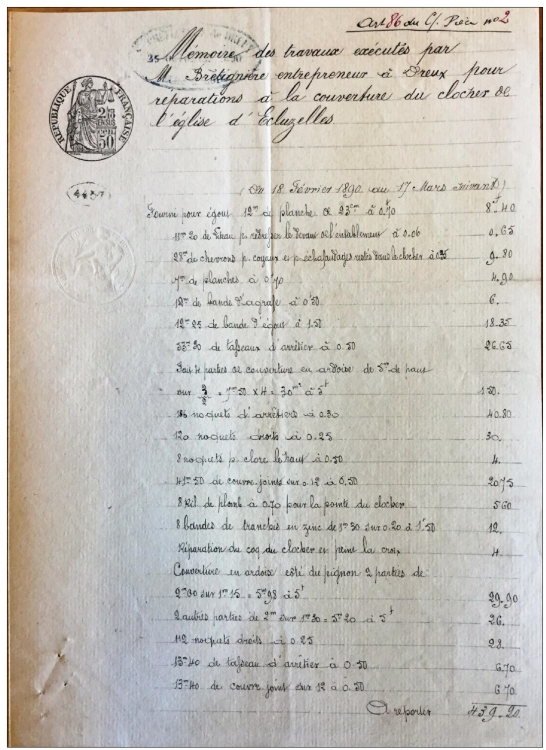 Art 86 du C/. Pièce no 2
Mémoire des travaux exécutés par
M. Brétignière entrepreneur à Dreux pour
réparations à la couverture du clocher de
l'église d'Ecluzelles
RÉPUBLIQUE FRANÇAISE
(Du 18 Février 1890 au 17 Mars suivant)
Fourni pour égout 12m de planche de 23cm à 0.70 8f.40
de p. le devant de l'entablement à 0.06 0.65
28m de chevrons p. coyaux et p. échafaudages restés dans le clocher à 0.35 9.80
7m de planches à 0.70 4.90
12m de bande d'agrafe à 0.50 6.
12m25 de bande d'égout à 1.50 18.35
53m30 de tasseaux d'arrêtier à 0.50 26.65
Fait 4 parties de couverture en ardoise de 5m de haut
sur 3/2 = 7m50 × 4 = 30m² à 5f 150.
136 noquets d'arrêtiers à 0.30 40.80
120 noquets droits à 0.25 30.
8 noquets p. clore le haut à 0.50 4.
41m50 de couvre joints sur 0.12 à 0.50 20.75
8 Kil de plomb à 0.70 pour la pointe du clocher 5.60
8 bandes de tranchis en zinc de 1m30 sur 0.20 à 1f.50 12.
Réparation du coq du clocher et peint la croix 4.
Couverture en ardoise côté du pignon 2 parties de
sur 1m15 = 5m98 à 5f 29.90
2 autres parties de 2m sur 1m30 = 5m20 à 5f 26.
112 noquets droits à 0.25 28.
13m40 de tasseau d'arrêtier à 0.50 6.70
13m40 de couvre joint sur 12 à 0.50 6.70
A reporter 439.20